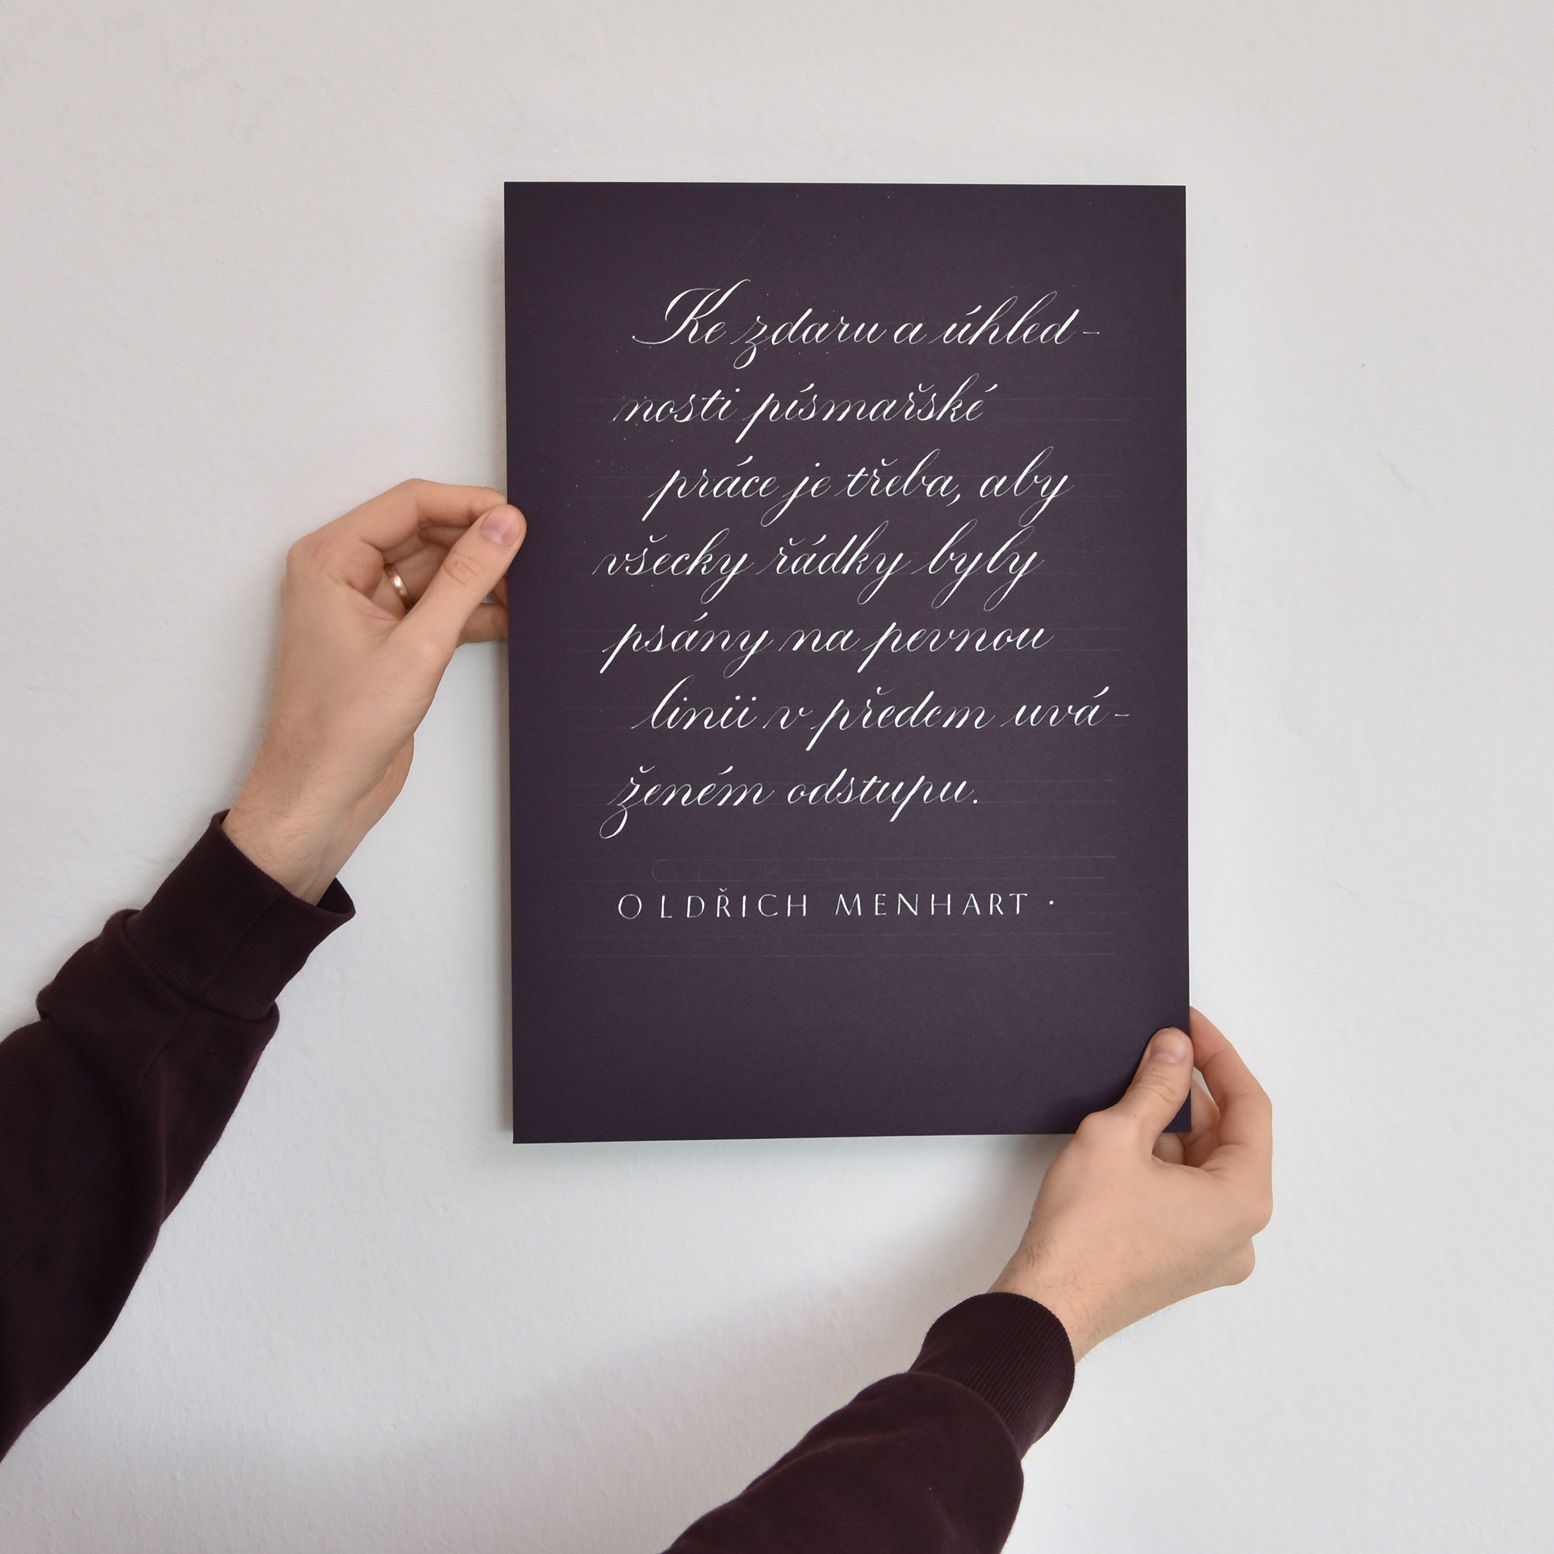 Ke zdaru a úhled-
nosti písmařské
práce je třeba, aby
všecky řádky byly
psány na pevnou
linii v předem uvá-
ženém odstupu.
OLDŘICH MENHART ·